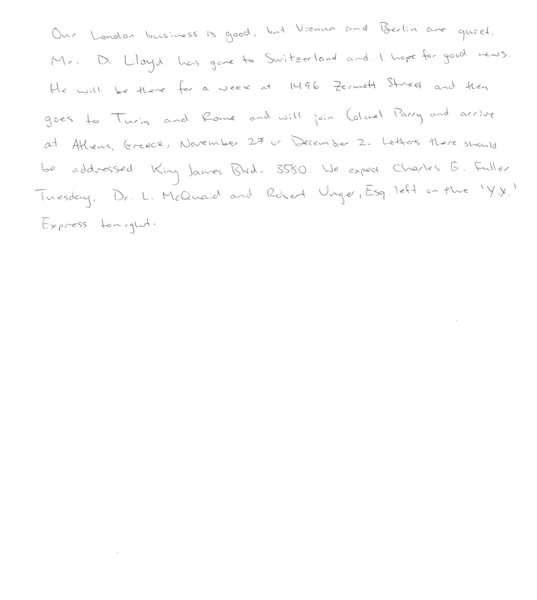 Our London business is good, but Vienna and Berlin are quiet.
Mr. D. Lloyd has gone to Switzerland and I hope for good news.
He will be there for a week at 1496 Zermott Street and then
goes to Turin and Rome and will join Colonel Parry and arrive
at Athens, Greece, November 27 or December 2. Letters there should
be addressed King James Blvd. 3580. We expect Charles E. Fuller
Tuesday. Dr. L. McQuaid and Robert Unger, Esq. left on the 'Y.X.'
Express tonight.